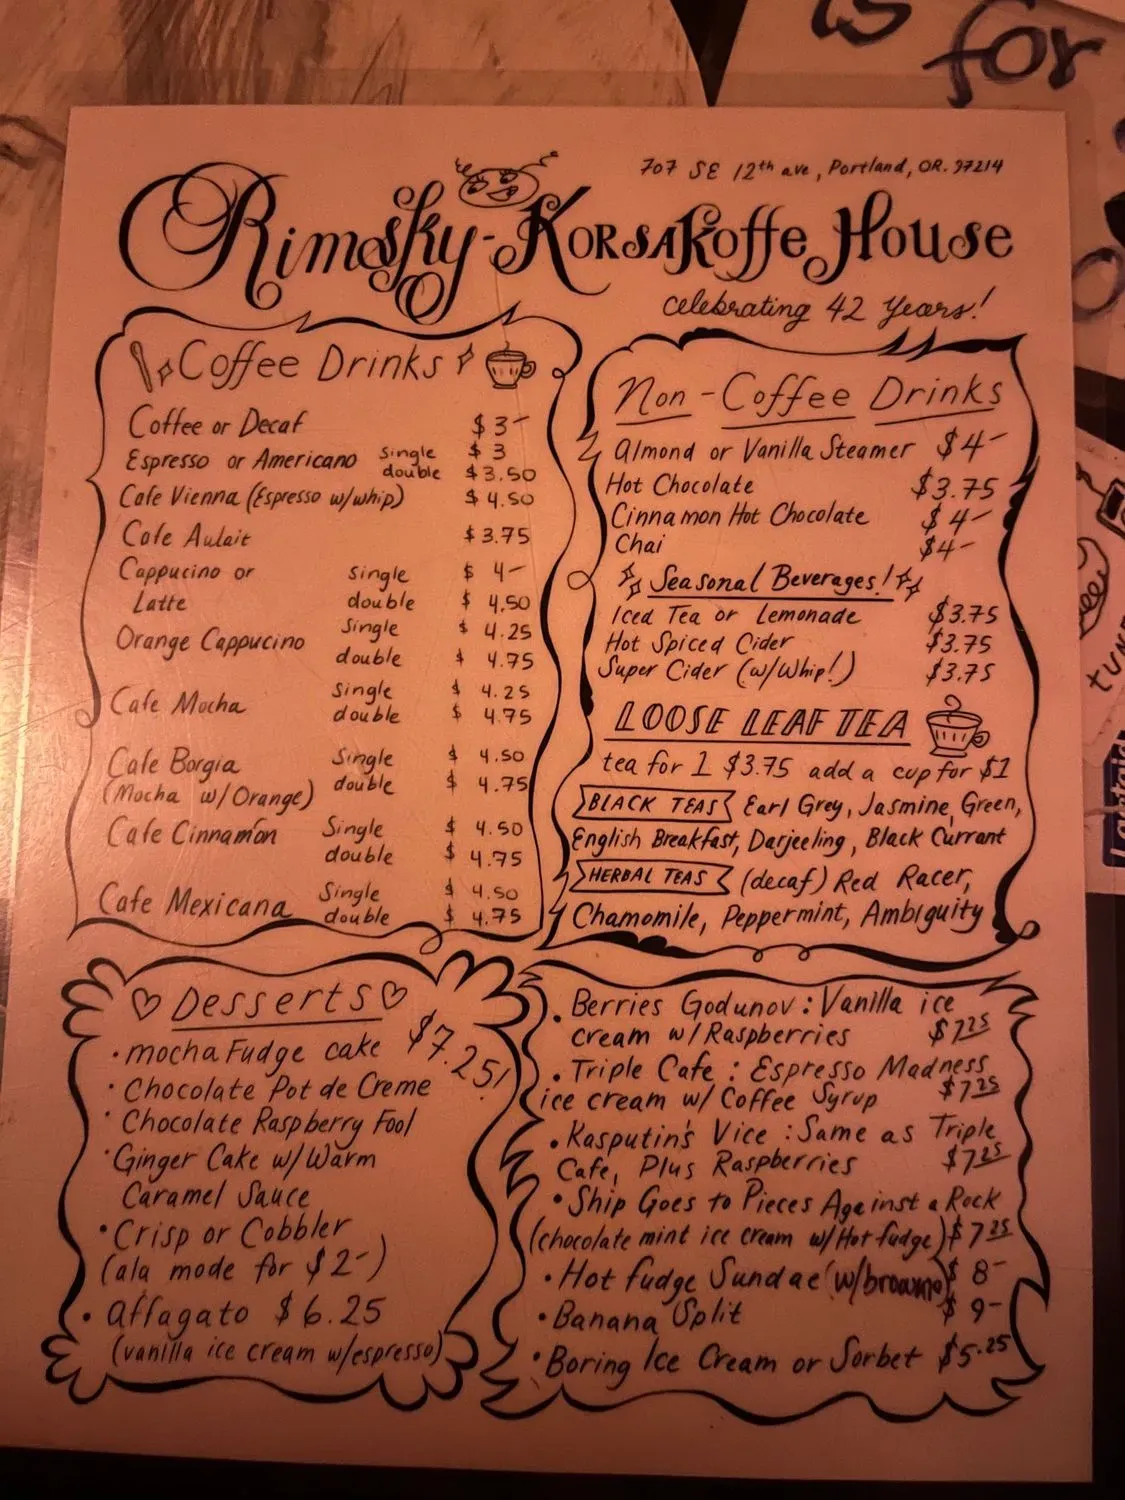 is for
707 SE 12th ave, Portland, OR. 97214
Rimsky-Korsakoffee House
celebrating 42 Years!
Coffee Drinks
Coffee or Decaf $3-
Espresso or Americano single $3
double $3.50
Cafe Vienna (Espresso w/whip) $4.50
Cafe Aulait $3.75
Cappucino or single $4-
Latte double $4.50
Orange Cappucino Single $4.25
double $4.75
Cafe Mocha Single $4.25
double $4.75
Cafe Borgia Single $4.50
(Mocha w/Orange) double $4.75
Cafe Cinnamon Single $4.50
double $4.75
Cafe Mexicana Single $4.50
double $4.75
Non-Coffee Drinks
Almond or Vanilla Steamer $4-
Hot Chocolate $3.75
Cinnamon Hot Chocolate $4-
Chai $4-
Seasonal Beverages!
Iced Tea or Lemonade $3.75
Hot Spiced Cider $3.75
Super Cider (w/Whip!) $3.75
LOOSE LEAF TEA
tea for 1 $3.75 add a cup for $1
BLACK TEAS Earl Grey, Jasmine, Green,
English Breakfast, Darjeeling, Black Currant
HERBAL TEAS (decaf) Red Racer,
Chamomile, Peppermint, Ambiguity
Desserts
• mocha Fudge cake $7.25!
• Chocolate Pot de Creme
• Chocolate Raspberry Fool
• Ginger Cake w/Warm
Caramel Sauce
• Crisp or Cobbler
(ala mode for $2-)
• affagato $6.25
(vanilla ice cream w/espresso)
• Berries Godunov: Vanilla ice
cream w/Raspberries $7.25
• Triple Cafe: Espresso Madness
ice cream w/ Coffee Syrup $7.25
• Rasputin's Vice: Same as Triple
Cafe, Plus Raspberries $7.25
• Ship Goes to Pieces Against a Rock
(chocolate mint ice cream w/Hot fudge) $7.25
• Hot fudge Sundae $8-
• Banana Split $9-
• Boring Ice Cream or Sorbet $5.25